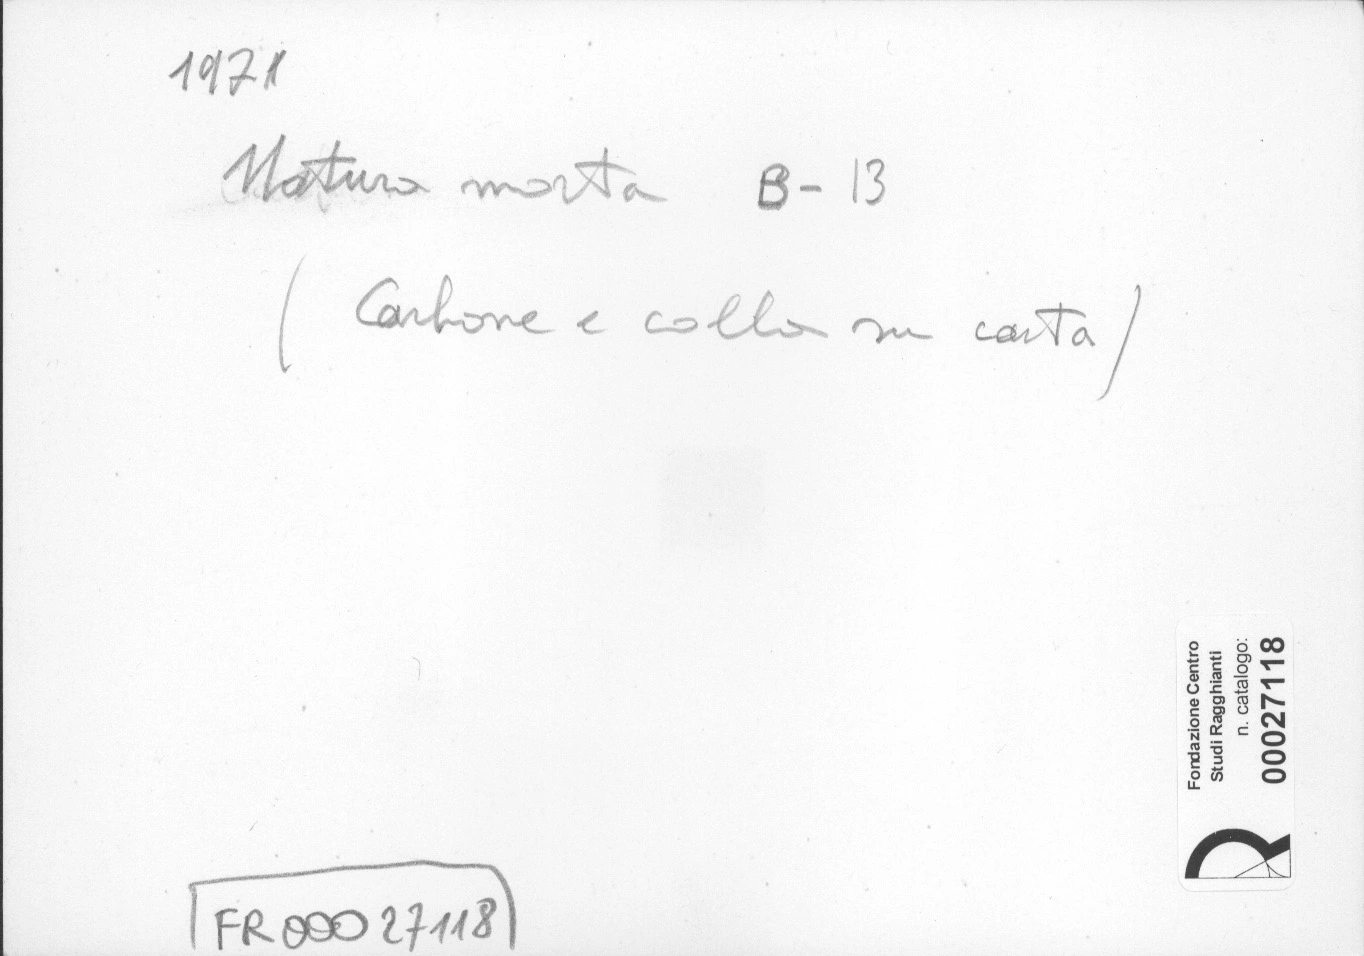 1971
Natura morta B-13
(Carbone e colla su carta)
Fondazione Centro
Studi Ragghianti
n. catalogo:
00027118
FR00027118